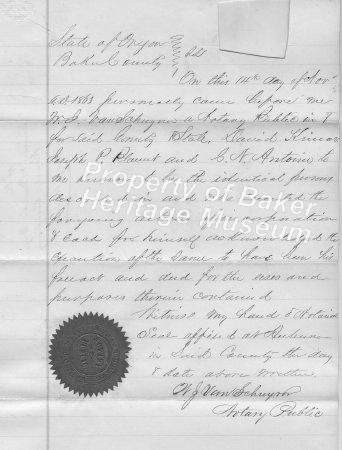 State of Oregon
Baker County } ss
On this 14th day of Nov
A.D. 1863 personally came before me
W. J. Van Schuyver a Notary Public in &
for Said County & State, David
Joseph P. and C. N. Antoine to
me known to be the identical persons
described in and who executed the
foregoing incorporation
& each for himself acknowledged the
execution of the Same to have been his
free act and deed for the uses and
purposes therein contained
Witness my hand & Notarial
Seal affixed at Auburn
in Said County the day
& date above written
W J Van Schuyver
Notary Public
Property of Baker
Heritage Museum